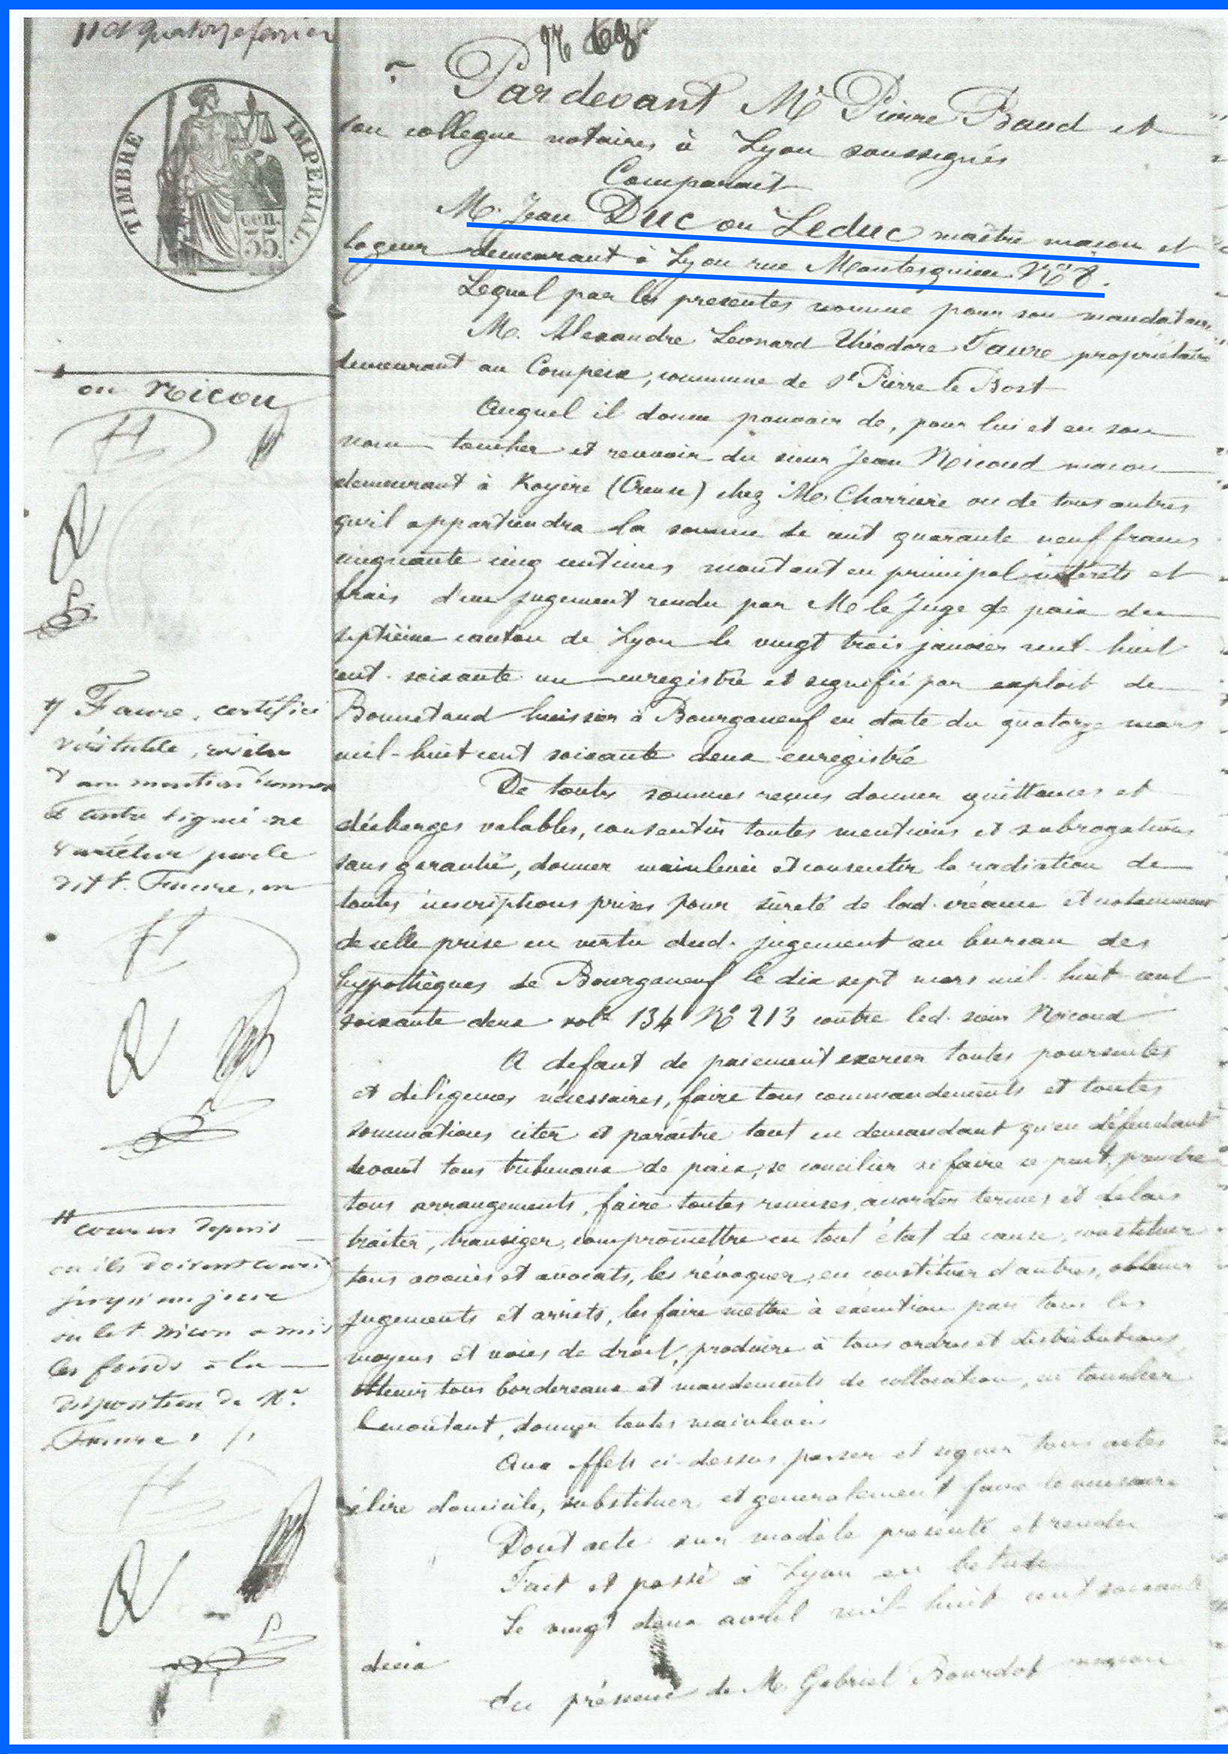 11 et quatorze fevrier
Pardevant Me Pierre Baud et
son collegue notaires à Lyon soussignés
Comparait
M. Jean Duc ou Leduc maître maçon et
logeur demeurant à Lyon rue Montesquieu No 8.
Lequel par les presentes nomme pour son mandataire
M. Alexandre Leonard Théodore Faure propriétaire
demeurant au Compeix, commune de St Pierre le Bost
Auquel il donne pouvoir de, pour lui et en son
nom toucher et recevoir du sieur Jean Nicoud maçon
demeurant à Royère (Creuse) chez M. Charriere ou de tous autres
qu'il appartiendra la somme de cent quarante neuf francs
cinquante cinq centimes montant en principal intérêts et
frais d'un jugement rendu par M. le Juge de paix du
septième canton de Lyon le vingt trois janvier mil huit
cent soixante un enregistré et signifié par exploit de
Bounetaud huissier à Bourganeuf en date du quatorze mars
mil-huit cent soixante deux enregistré
De toutes sommes reçues donner quittances et
décharges valables, consentir toutes mentions et subrogations
sans garantie, donner mainlevée et consentir la radiation de
toutes inscriptions prises pour sûreté de lad. créance et notamment
de celle prise en vertu dud. jugement au bureau des
hypothèques de Bourganeuf le dix sept mars mil huit cent
soixante deux vole 134 No 213 contre led. sieur Nicoud
A defaut de paiement exercer toutes poursuites
et diligences nécessaires, faire tous commandements et toutes
sommations citer et paraitre tant en demandant qu'en défendant
devant tous tribunaux de paix, se concilier si faire se peut, prendre
tous arrangements, faire toutes remises, accorder termes et délais
traiter, transiger, compromettre en tout état de cause, constituer
tous avoués et avocats, les révoquer, en constituer d'autres, obtenir
jugements et arrêts, les faire mettre à exécution par tous les
moyens et voies de droit, produire à tous ordres et distributions
obtenir tous bordereaux et mandements de collocation, en toucher
le montant, donner toutes mainlevées
Aux effets ci-dessus passer et signer tous actes
élire domicile, substituer et generalement faire le necessaire
Dont acte sur modèle presenté et rendu
Fait et passé à Lyon en l'etude
Le vingt deux avril mil huit cent soixante
deux
En présence de M. Gabriel Bourdot maçon
TIMBRE IMPERIAL.
cen.
35.
ou Nicou
Faure, certifié
véritable,
mention
et autre signé ne
varietur par le
dit Sr. Faure, en
courus depuis
ou ils doivent courir
jusqu'au jour
ou le Sr Nicou a mis
les fonds à la
disposition de Mr.
Faure